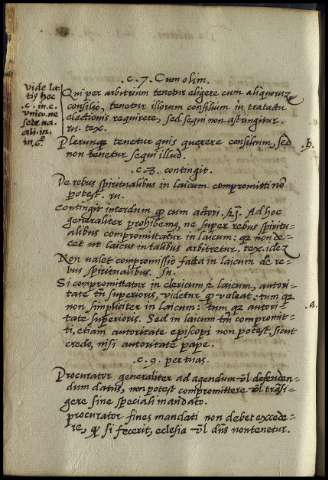 .c. 7. Cum olim.
vide la
tiꝰ hoc
.c. in. c.
vnico. ne
sede va-
ca. li. 
in. 6.
Qui per arbitrium tenetur eligere cum aliquorum
consilio, tenetur illorum consilium in tractatu
electionis requirere, sed sequi non astringitur.
tex.
Plerunque tenetur quis querere consilium, sed
non tenetur sequi illud.
.b.
.c. 8. contingit.
De rebus spiritualibus in laicum compromitti nō
potest.
Contingit interdum cum actori, Ad hoc
generaliter prohibemus, ne super rebus spiritu-
alibus compromittatur in laicum: non de-
cet ut laicus in talibus arbitretur. tex.
Non valet compromissio facta in laicum de re-
bus spiritualibus.
Si compromittatur in clericum & laicum, autori-
tate superioris, videtur valeat:
non simpliciter in laicum: autori-
tate superioris. Sed in laicum compromit-
ti, etiam autoritate episcopi non potest, sicut
credo, nisi autoritate pape.
.a.
.c. 9. per tuas.
Procurator generaliter ad agendum vel defenden-
dum datus, non potest compromittere vel trāsi-
gere sine speciali mandato.
procurator fines mandati non debet excede-
re, si fecerit, eclesia vel dn̄s non tenetur.